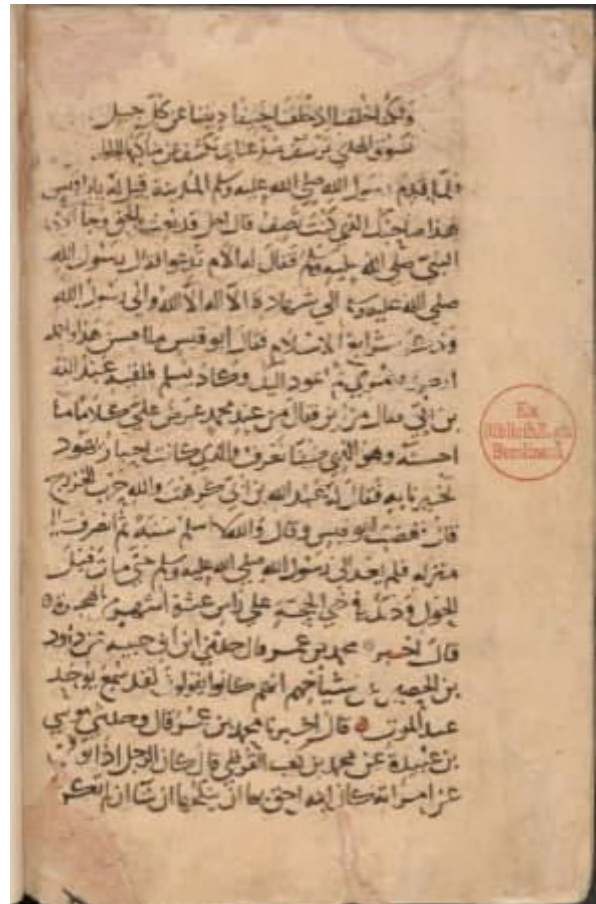 ولكنا خلقنا اذ خلقنا حنيفا ديننا عن كل جيل
نسوق الهدي ترسف مذعنات تكشف عن مناكبها
فلما قدم رسول الله صلى الله عليه وسلم المدينة قيل له يا ابا قيس
هذا صاحبك الذي كنت تصف قال اجل قد بعث بالحق وجا الى
النبي صلى الله عليه وسلم فقال له الام تدعوا فقال رسول الله
صلى الله عليه وسلم الى شهادة الا اله الا الله واني رسول الله
وذكر شرايع الاسلام فقال ابو قيس ما احسن هذا واجمله
انظر في امري ثم اعود اليك وكاد يسلم فلقيه عبد الله
بن ابي فقال من اين فقال من عند محمد عرض علي كلاما ما
احسنه وهو الذي كنا نعرف والذي كانت احبار يهود
تخبرنا به فقال له عبد الله بن ابي كرهت والله حرب الخزرج
قال فغضب ابو قيس وقال والله لا اسلم سنة ثم انصرف الى
منزله فلم يعد الى رسول الله صلى الله عليه وسلم حتى مات قبل
الحول وذلك في ذي الحجة على راس عشرة اشهر من الهجرة
قال اخبرنا محمد بن عمر قال حدثني ابن ابي حبيبة عن داود
بن الحصين عن اشياخهم انهم كانوا يقولون لقد سمع يوحد
عند الموت قال اخبرنا محمد بن عمر قال وحدثني موسى
بن عبيدة عن محمد بن كعب القرظي قال كان الرجل اذا توفي
عن امراته كان ابنه احق بها ان ينكحها ان شا ان لم تكن
Ex